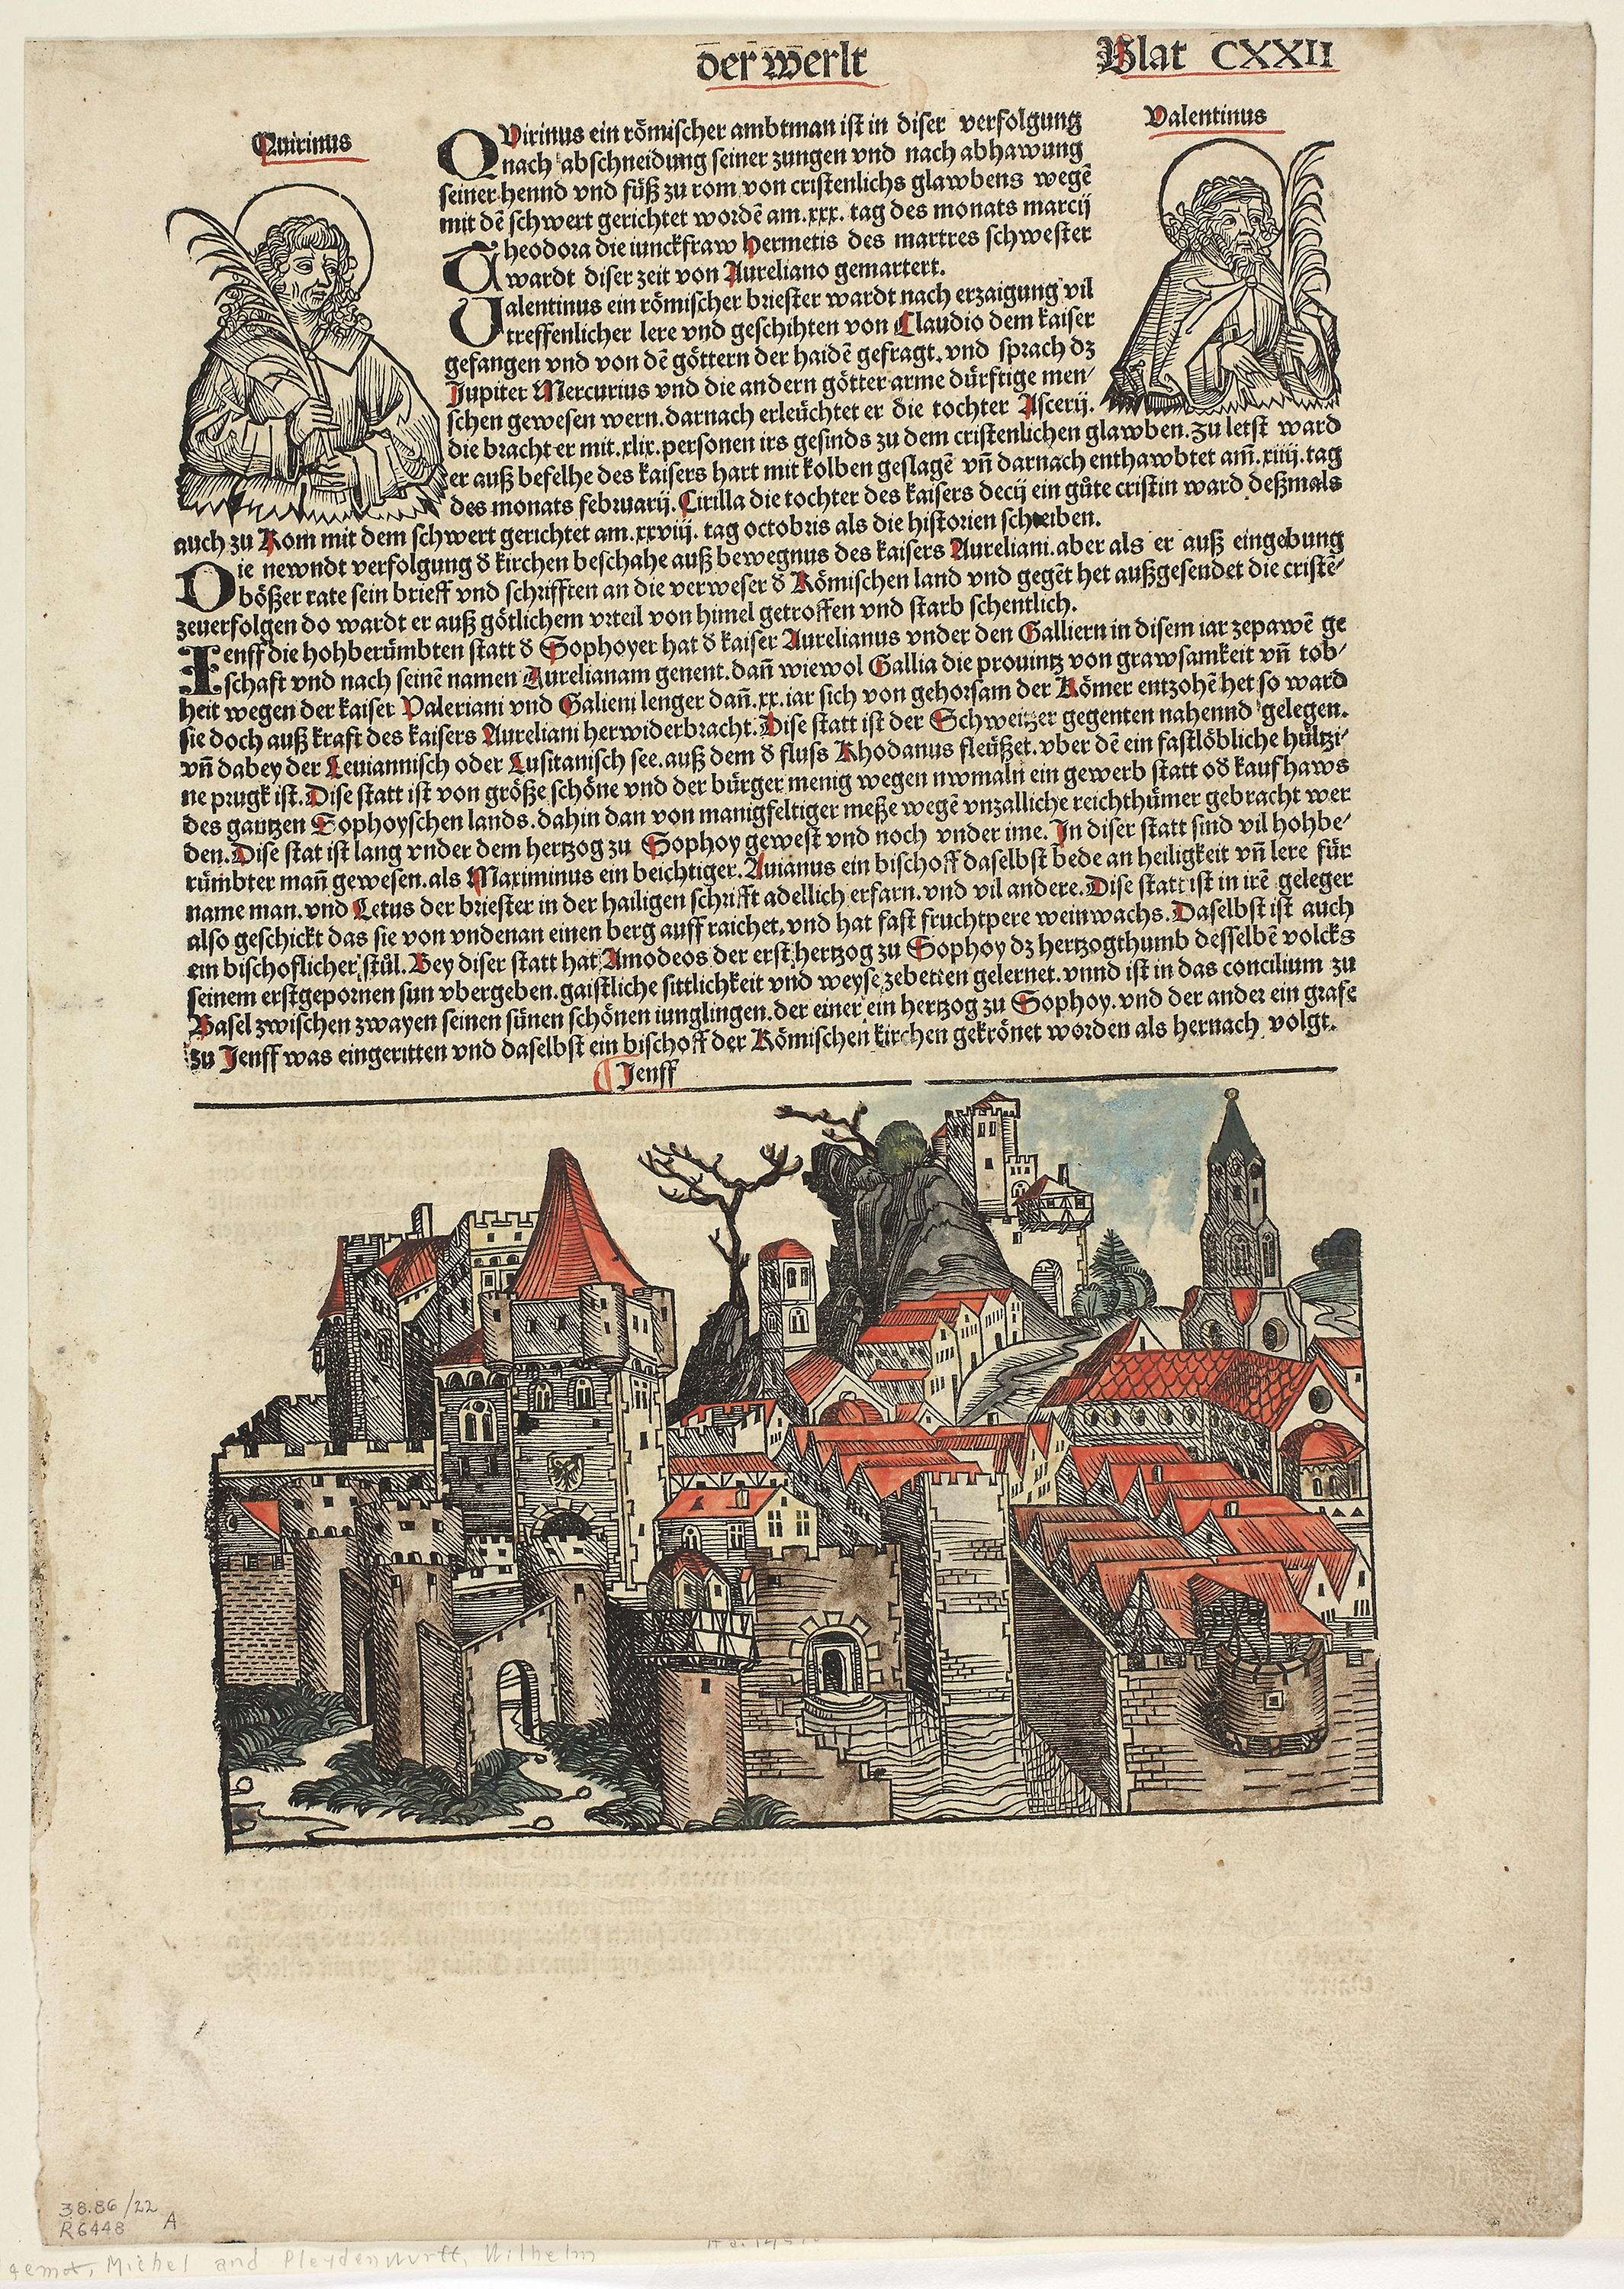 der werlt
Blat CXXII
Quirinus
Valentinus
QVirinus ein römischer ambtman ist in diser verfolgung
nach abschneidung seiner zungen vnd nach abhawung
seiner hennd vnd füß zu rom von cristenlichs glawbens wegē
mit dē schwert gerichtet wordē am .xxx. tag des monats marcij
Theodora die iunckfraw Hermetis des martres schwester
wardt diser zeit von Aureliano gemartert.
Valentinus ein römischer briester wardt nach erzaigung vil
treffenlicher lere vnd geschihten von Claudio dem kaiser
gefangen vnd von dē göttern der haidē gefragt. vnd sprach dz
Jupiter Mercurius vnd die andern götter arme dürftige men/
schen gewesen wern. darnach erleüchtet er die tochter Ascerij.
die bracht er mit .xlix. personen irs gesinds zu dem cristenlichen glawben. zu letst ward
er auß befelhe des kaisers hart mit kolben geslagē vn̄ darnach enthawbtet am̄ .xiiij. tag
des monats februarij. Cirilla die tochter des kaisers decij ein gůte cristin ward deßmals
auch zu Rom mit dem schwert gerichtet am .xxviij. tag octobris als die historien schreiben.
Die newndt verfolgung d̕ kirchen beschahe auß bewegnus des kaisers Aureliani. aber als er auß eingebung
bößer rate sein brieff vnd schrifften an die verweser d̕ Römischen land vnd gegēt het außgesendet die cristē/
zeuerfolgen do wardt er auß götlichem vrteil von himel getroffen vnd starb schentlich.
Jenff die hohberümbten statt d̕ Sophoyer hat d̕ kaiser Aurelianus vnder den Galliern in disem iar zepawē ge
schaft vnd nach seinē namen Aurelianam genent. dan̄ wiewol Gallia die prouintz von grawsamkeit vn̄ tob/
heit wegen der kaiser Valeriani vnd Galieni lenger dan̄ .xx. iar sich von gehorsam der Römer entzohē het so ward
sie doch auß kraft des kaisers Aureliani herwiderbracht. Dise statt ist der Schweitzer gegenten nahennd gelegen.
vn̄ dabey der Leuiannisch oder Lusitanisch see. auß dem d̕ fluss Rhodanus fleüßet. vber dē ein fastlöbliche hültzi/
ne prugk ist. Dise statt ist von größe schöne vnd der bürger menig wegen nwmaln ein gewerb statt od̕ kaufhaws
des gantzen Sophoyschen lands. dahin dan von manigfeltiger meße wegē vnzalliche reichthümer gebracht wer
den. Dise stat ist lang vnder dem hertzog zu Sophoy gewest vnd noch vnder ime. In diser statt sind vil hohbe/
rümbter man̄ gewesen. als Maximinus ein beichtiger. Auianus ein bischoff daselbst bede an heiligkeit vn̄ lere für
name man. vnd Letus der briester in der hailigen schrifft adellich erfarn. vnd vil andere. Dise statt ist in irē geleger
also geschickt das sie von vndenan einen berg auff raichet. vnd hat fast fruchtpere weinwachs. Daselbst ist auch
ein bischoflicher stůl. Bey diser statt hat Amodeos der erst hertzog zu Sophoy dz hertzogthumb desselbē volcks
seinem erstgepornen sun vbergeben. gaistliche sittlichkeit vnd weyse zebetten gelernet. vnnd ist in das concilium zu
Basel zwischen zwayen seinen sünen schönen iunglingen. der einer ein hertzog zu Sophoy. vnd der ander ein grafe
zu Jenff was eingeritten vnd daselbst ein bischoff der Römischen kirchen gekrönet worden als hernach volgt.
Jenff
38.86/22
R6448 A
Michel and Pleydenwurff, Wilhelm